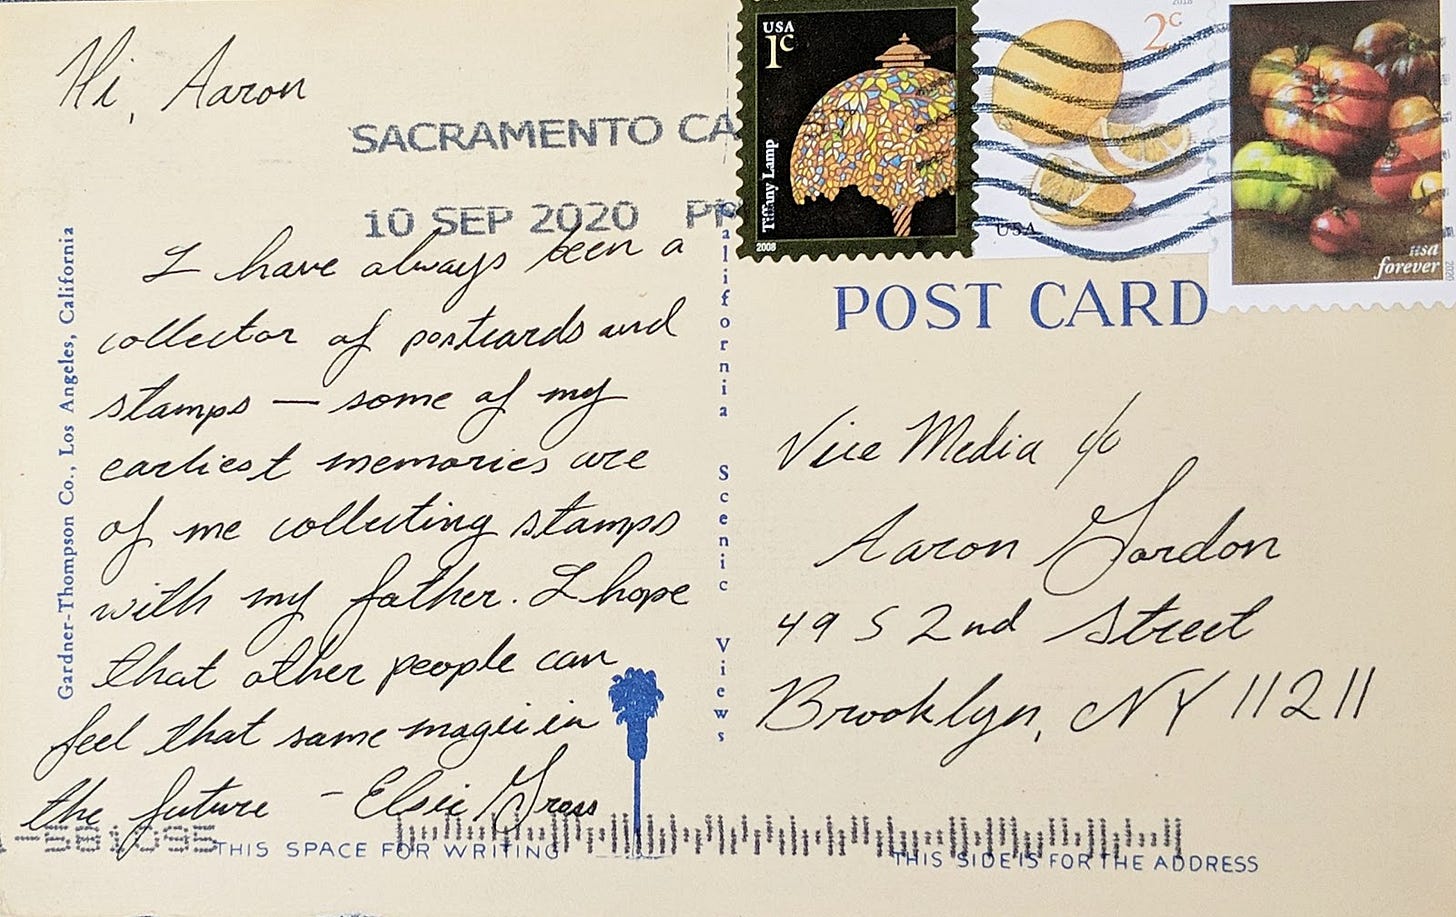 Hi, Aaron
SACRAMENTO CA
10 SEP 2020 PM
I have always been a
collector of postcards and
stamps — some of my
earliest memories are
of me collecting stamps
with my father. I hope
that other people can
feel that same magic in
the future - Elsie Gross
Gardner-Thompson Co., Los Angeles, California
California Scenic Views
USA
1c
Tiffany Lamp
2008
2018
2c
USA
usa
forever
2020
POST CARD
Vice Media c/o
Aaron Gordon
49 S 2nd Street
Brooklyn, NY 11211
THIS SPACE FOR WRITING
THIS SIDE IS FOR THE ADDRESS